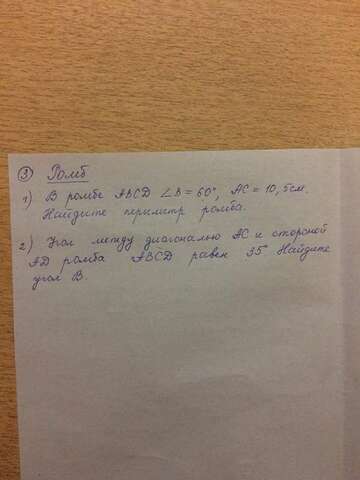 ③ Ромб
1) В ромбе ABCD ∠B = 60°, AC = 10,5см.
Найдите периметр ромба.
2) Угол между диагональю AC и стороной
AD ромба ABCD равен 35° Найдите
угол B.